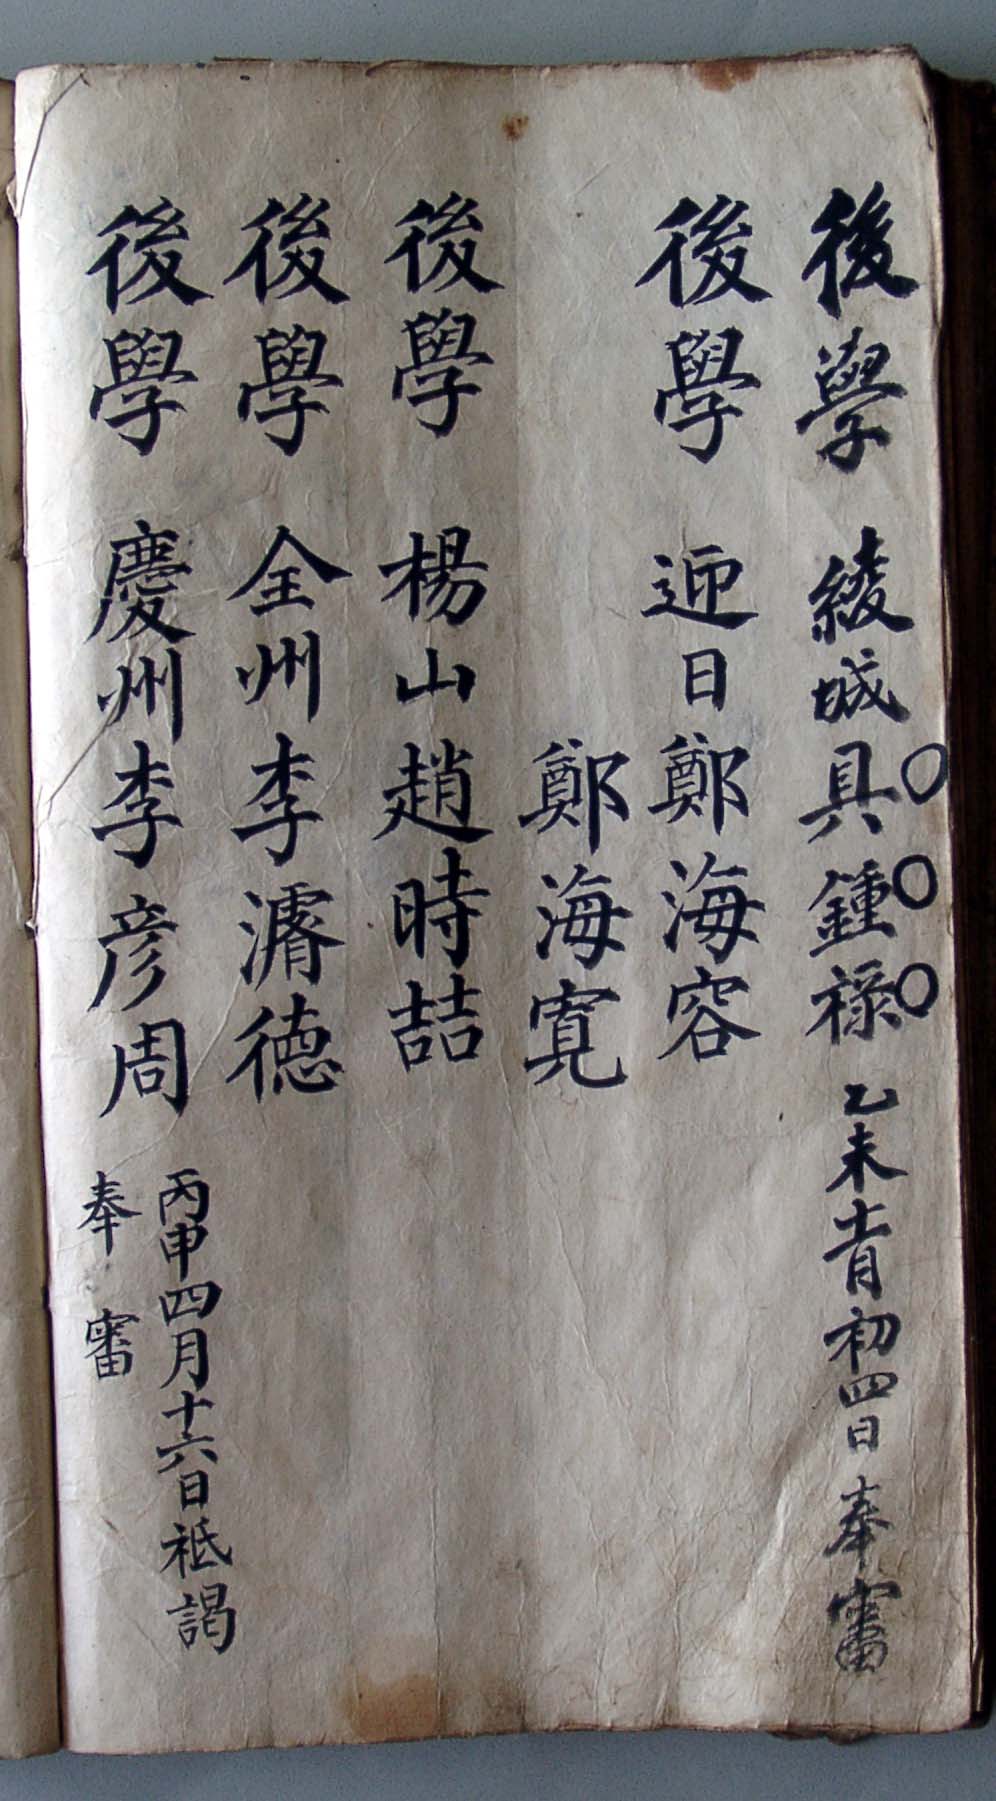 後學 綾城具鍾祿 乙未十一月初四日 奉審
後學 迎日鄭海容
鄭海寬
後學 楊山趙時喆
後學 全州李濬德
後學 慶州李彦周 丙申四月十六日祗謁
奉審